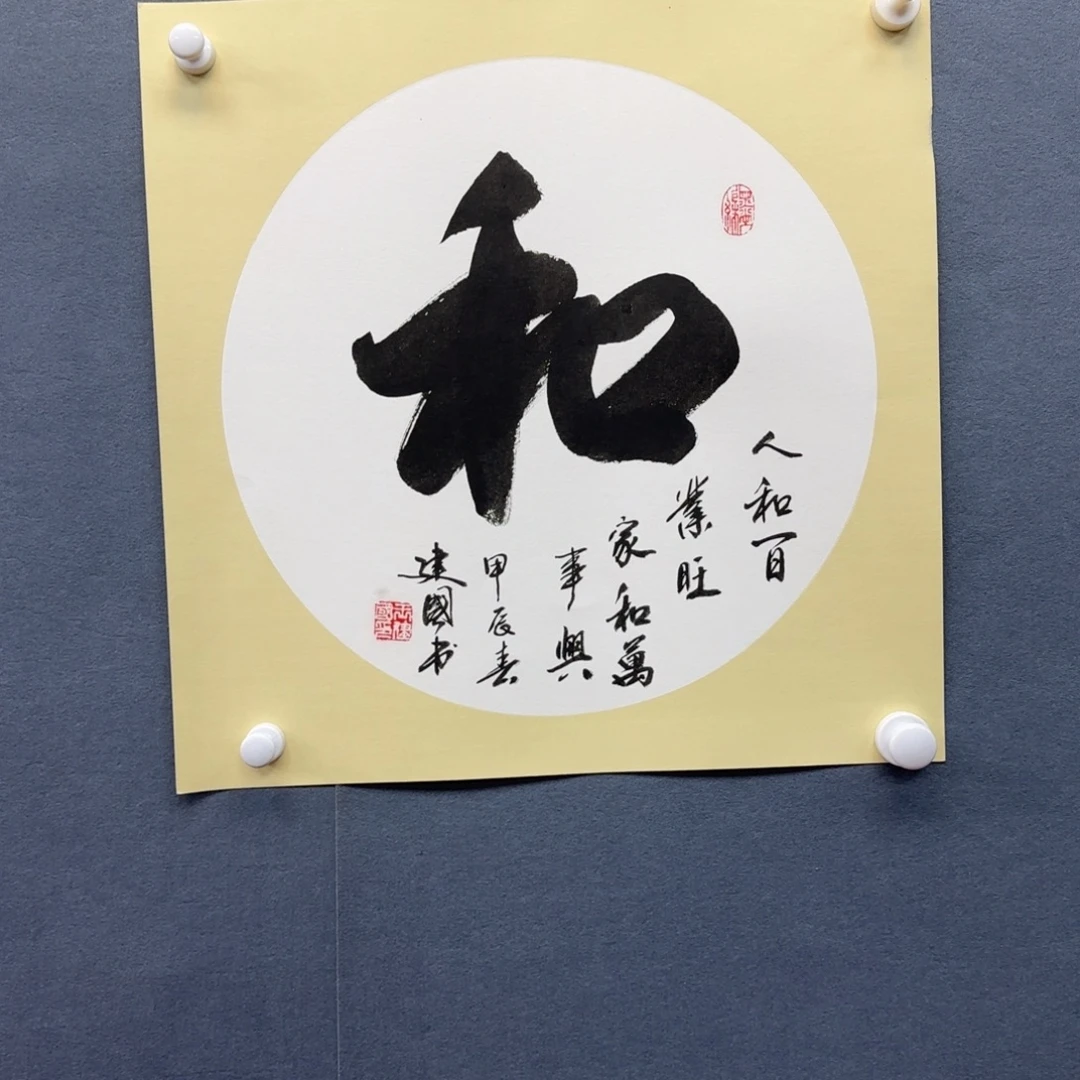 和
人和百
業旺
家和萬
事興
甲辰春
建國书